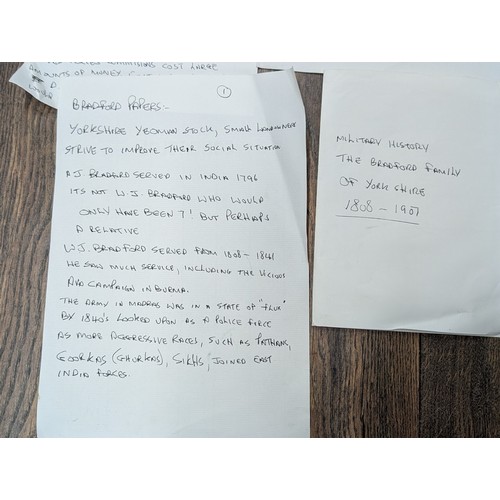 COST LARGE
OF MONEY
1
BRADFORD PAPERS:-
YORKSHIRE YEOMAN STOCK, SMALL LANDOWNER
STRIVE TO IMPROVE THEIR SOCIAL SITUATION
A J BRADFORD SERVED IN INDIA 1796
ITS NOT W.J. BRADFORD WHO WOULD
ONLY HAVE BEEN 7! BUT PERHAPS
A RELATIVE
W.J. BRADFORD SERVED FROM 1808 - 1841
HE SAW MUCH SERVICE, INCLUDING THE VICIOUS
AVA CAMPAIGN IN BURMA.
THE ARMY IN MADRAS WAS IN A STATE OF "FLUX"
BY 1840'S LOOKED UPON AS A POLICE FORCE
AS MORE AGGRESSIVE RACES, SUCH AS PATHANS,
GOORKAS (GHURKAS), SIKHS, JOINED EAST
INDIA FORCES.
MILITARY HISTORY
THE BRADFORD FAMILY
OF YORKSHIRE
1808 - 1907